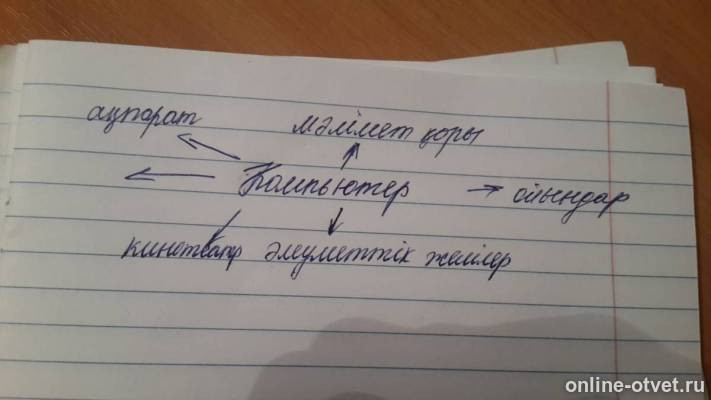 ақпарат мәлімет қоры
Компьютер ойындар
кинотеатр әлеуметтік желілер
online-otvet.ru